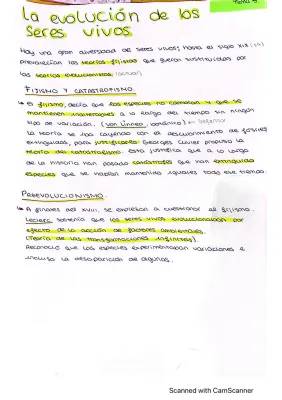 La evolución de los
seres vivos
Tema 5
Hay una gran diversidad de seres vivos; hasta el siglo XIX
prevalecían las teorías fijistas que fueron sustituidas por
las teorías evolucionistas (actual)
FIJISMO Y CATASTROFISMO
El fijismo, decía que las especies no cambian y que se
mantienen a lo largo del tiempo sin ningún
tipo de variación. (Von Linneo, botánico)
La teoría se iba cayendo con el descubrimiento de fósiles
extinguidos, para justificarlo Georges Cuvier propuso la
teoría del catastrofismo. Esta justifica que a lo largo
de la historia han pasado catástrofes que han extinguido
especies que se habían mantenido iguales todo ese tiempo.
PREEVOLUCIONISMO
A finales del XVIII, se empieza a cuestionar el fijismo.
Leclerc sostenía que los seres vivos evolucionaban por
efecto de la acción de factores ambientales.
(Teoría de las transformaciones infinitas)
Reconoció que las especies experimentaban variaciones e
incluso la desaparición de algunas.
Scanned with CamScanner